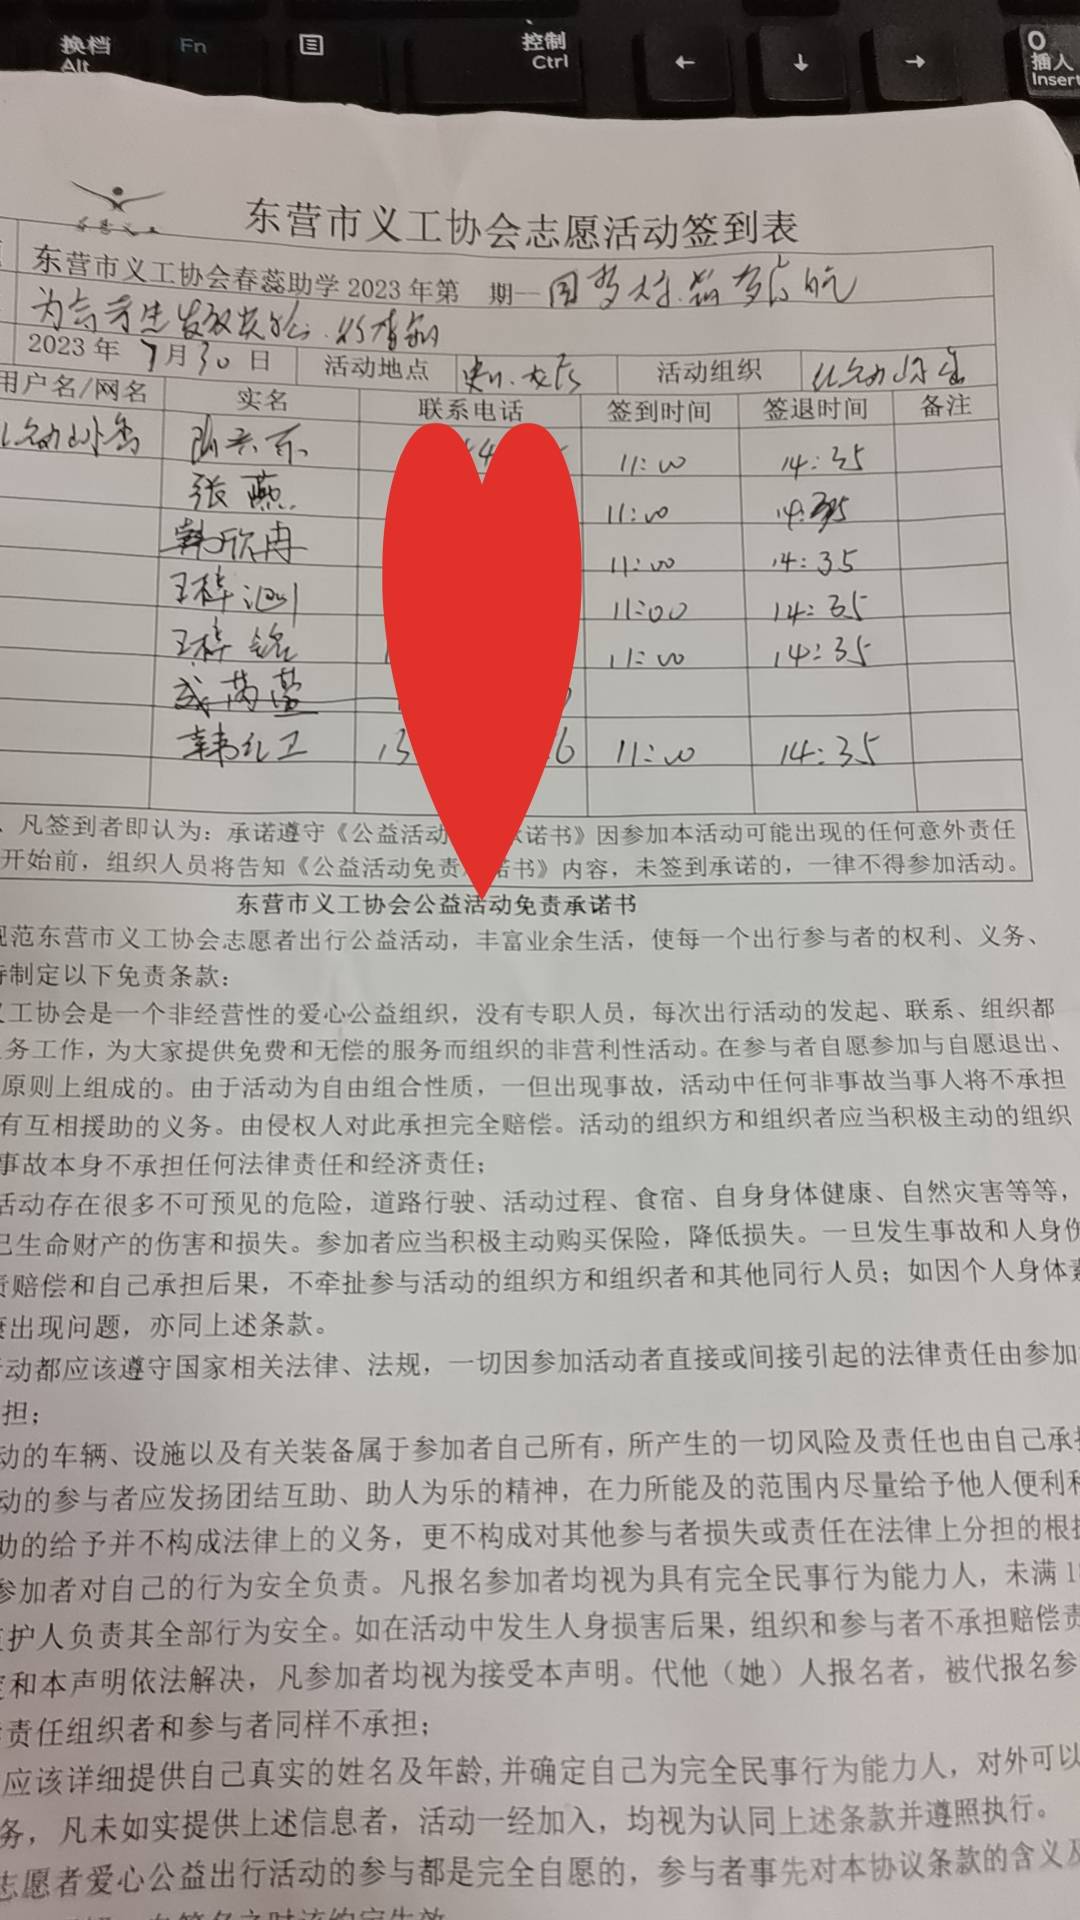 换档 Fn 控制 0
Alt Ctrl ← ↓ → 插入
Insert
东营市义工协会志愿活动签到表
东营市义工协会春蕊助学2023年第 期一
2023年 7月30日 活动地点 活动组织
用户名/网名 实名 联系电话 签到时间 签退时间 备注
11:00 14:35
张燕 11:00 14:35
韩欣冉 11:00 14:35
王梓 11:00 14:35
王梓铭 11:00 14:35
韩红卫 13 6 11:00 14:35
、凡签到者即认为：承诺遵守《公益活动 承诺书》因参加本活动可能出现的任何意外责任
开始前，组织人员将告知《公益活动免责 诺书》内容，未签到承诺的，一律不得参加活动。
东营市义工协会公益活动免责承诺书
规范东营市义工协会志愿者出行公益活动，丰富业余生活，使每一个出行参与者的权利、义务、
特制定以下免责条款：
义工协会是一个非经营性的爱心公益组织，没有专职人员，每次出行活动的发起、联系、组织都
务工作，为大家提供免费和无偿的服务而组织的非营利性活动。在参与者自愿参加与自愿退出、
原则上组成的。由于活动为自由组合性质，一但出现事故，活动中任何非事故当事人将不承担
有互相援助的义务。由侵权人对此承担完全赔偿。活动的组织方和组织者应当积极主动的组织
事故本身不承担任何法律责任和经济责任；
活动存在很多不可预见的危险，道路行驶、活动过程、食宿、自身身体健康、自然灾害等等，
己生命财产的伤害和损失。参加者应当积极主动购买保险，降低损失。一旦发生事故和人身伤
责赔偿和自己承担后果，不牵扯参与活动的组织方和组织者和其他同行人员；如因个人身体素
康出现问题，亦同上述条款。
动都应该遵守国家相关法律、法规，一切因参加活动者直接或间接引起的法律责任由参加
担；
动的车辆、设施以及有关装备属于参加者自己所有，所产生的一切风险及责任也由自己承担
动的参与者应发扬团结互助、助人为乐的精神，在力所能及的范围内尽量给予他人便利和
助的给予并不构成法律上的义务，更不构成对其他参与者损失或责任在法律上分担的根据
参加者对自己的行为安全负责。凡报名参加者均视为具有完全民事行为能力人，未满1
监护人负责其全部行为安全。如在活动中发生人身损害后果，组织和参与者不承担赔偿责
定和本声明依法解决，凡参加者均视为接受本声明。代他（她）人报名者，被代报名参
责任组织者和参与者同样不承担；
应该详细提供自己真实的姓名及年龄，并确定自己为完全民事行为能力人，对外可以
务，凡未如实提供上述信息者，活动一经加入，均视为认同上述条款并遵照执行。
志愿者爱心公益出行活动的参与都是完全自愿的，参与者事先对本协议条款的含义及